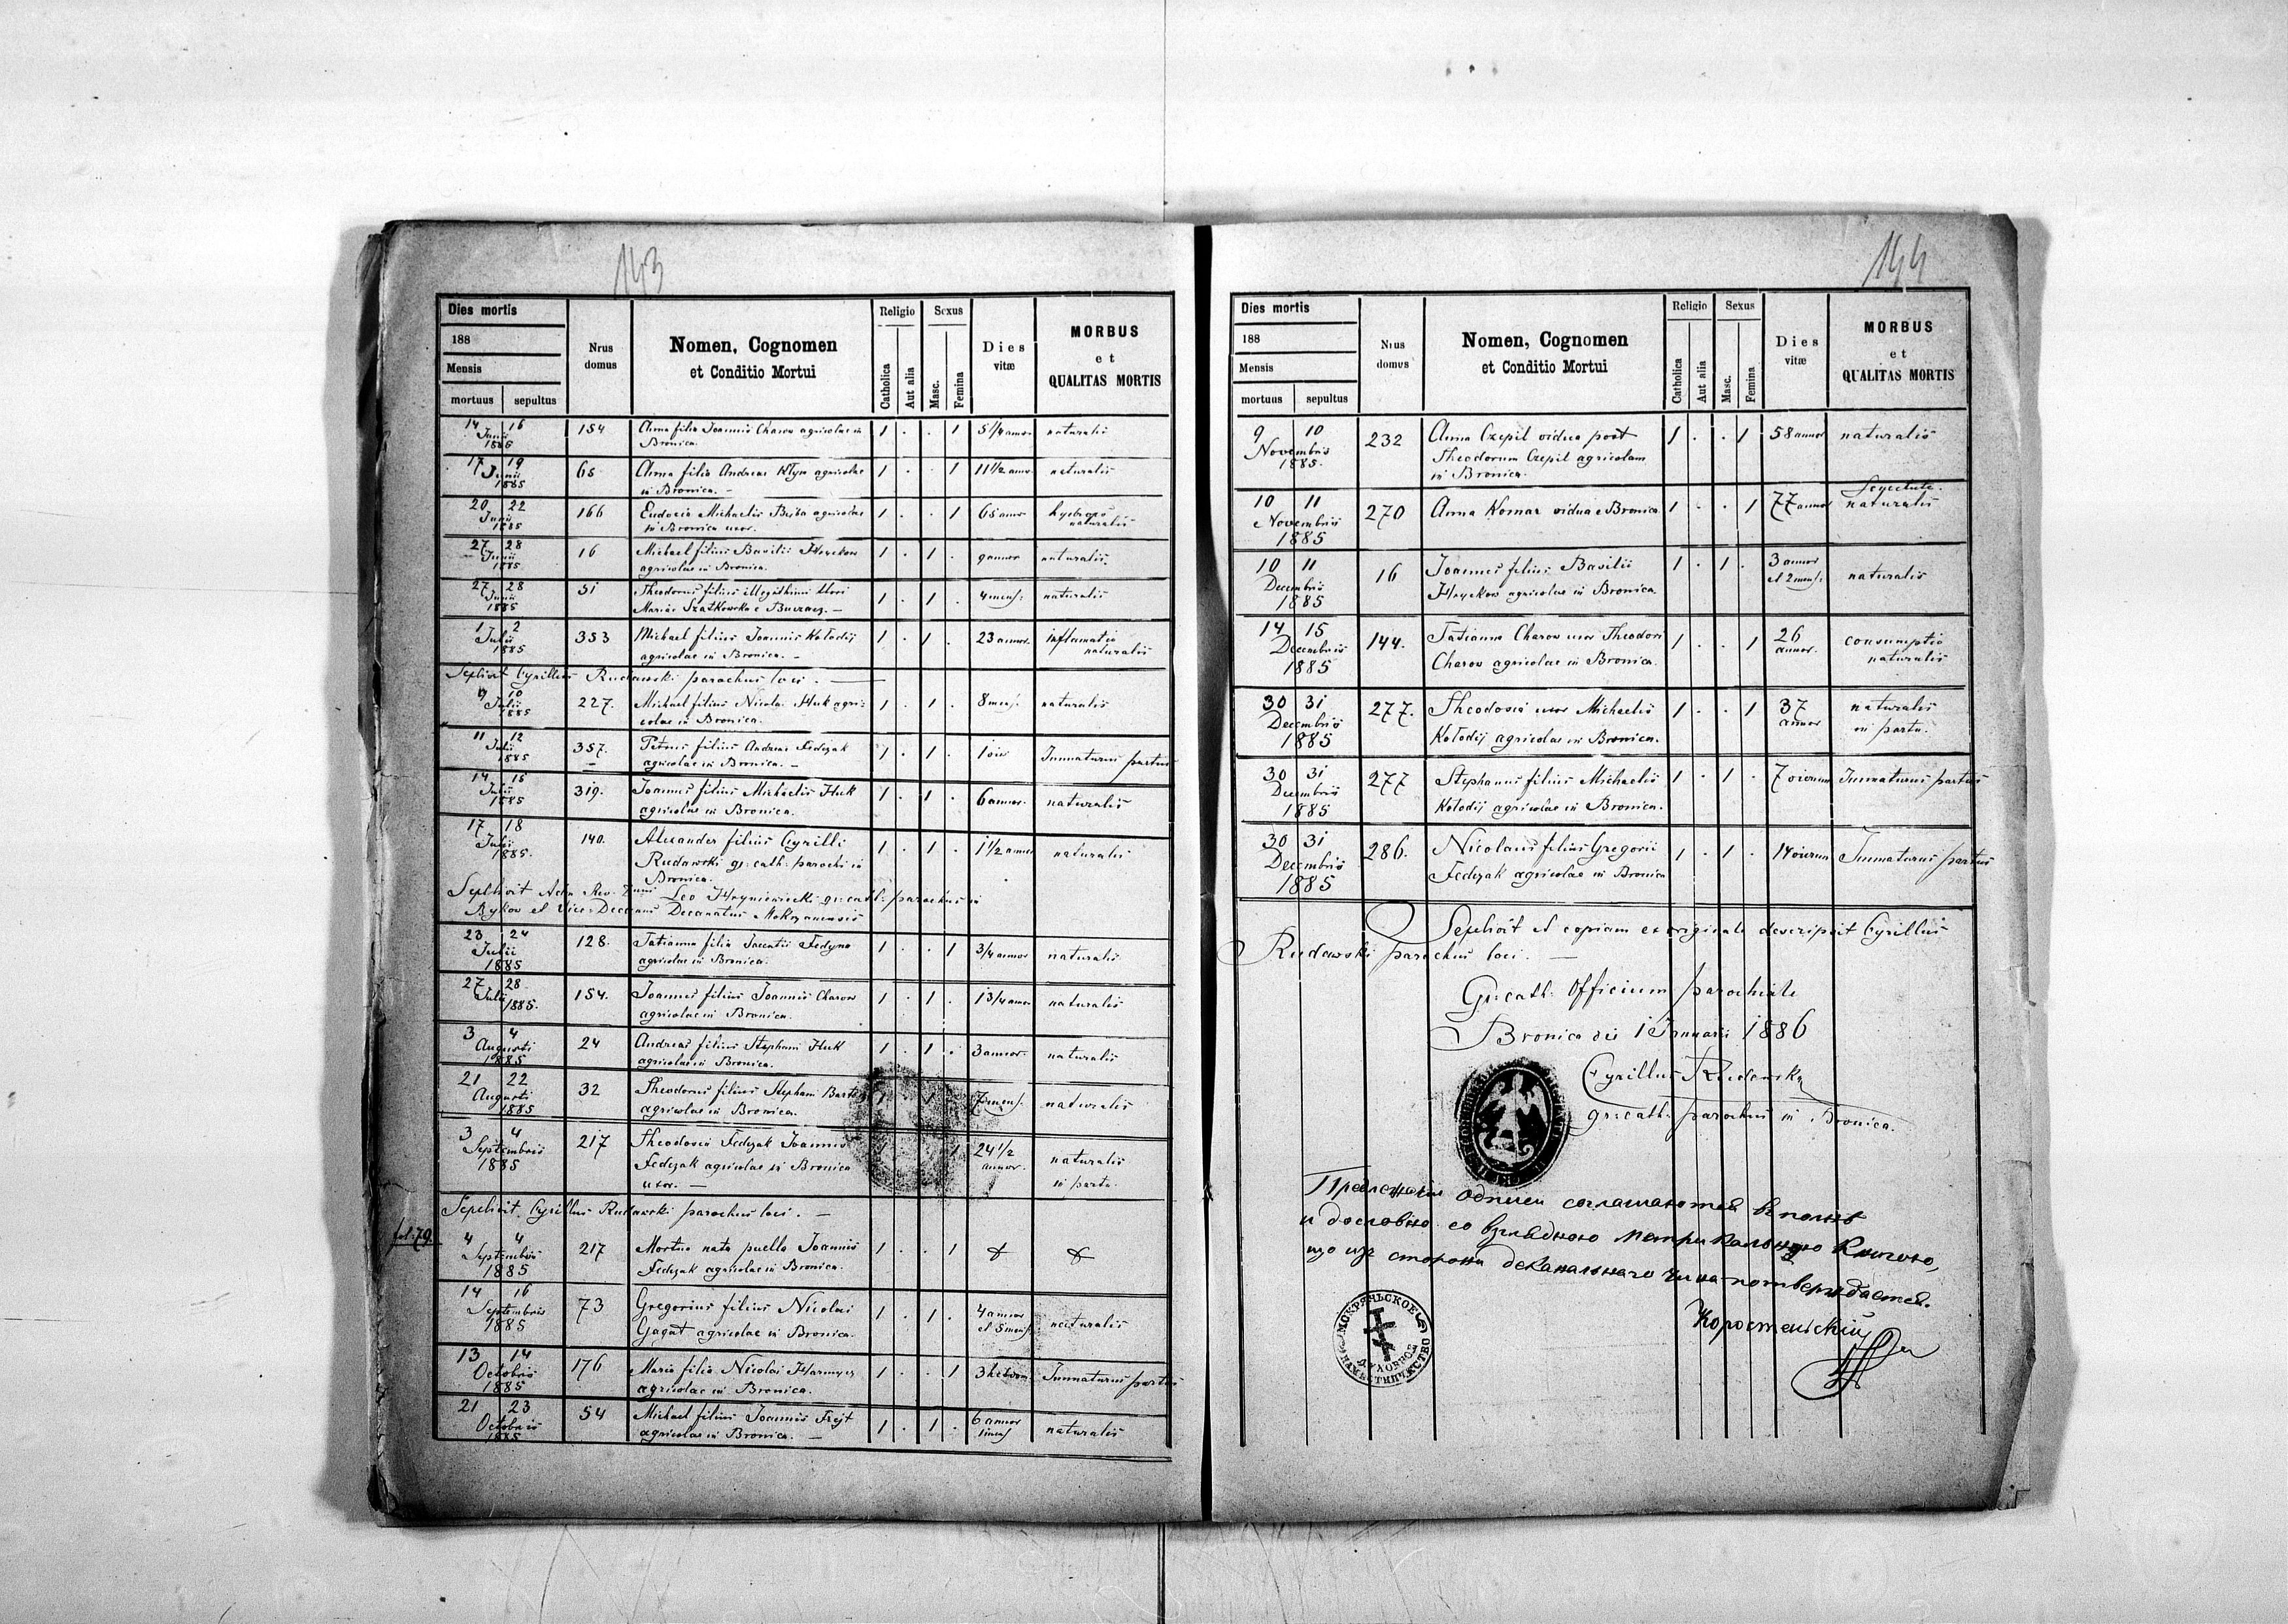 143
Dies mortis
188
Mensis
mortuus sepultus
Nrus domus
Nomen, Cognomen
et Conditio Mortui
Religio
Catholica
Aut alia
Sexus
Masc.
Femina
Dies vitæ
MORBUS
et
QUALITAS MORTIS
14 16 Junii 1885 154 Anna filia Joannis Charow agricolae in 1 . . 1 5 1/4 annor naturalis
Bronica.
17 19 Junii 1885 65 Anna filia Andreae Kłym agricolae 1 . . 1 11 1/2 annor naturalis
in Bronica. —
20 22 Junii 1885 166 Eudocia Michaelis agricolae 1 . . 1 65 annor hydrops naturalis
in Bronica uxor.
27 28 Junii 1885 16 Michael filius Basilii Hryckow 1 . 1 . 9 annor naturalis
agricolae in Bronica.
27 28 Junii 1885 51 Theodorus filius illegithimi thori 1 . 1 . 4 mens. naturalis
Mariae Szatkowska e —
1 2 Julii 1885 353 Michael filius Joannis Kołodij 1 . 1 . 23 annor. inflamatio naturalis
agricolae in Bronica. —
Sepelivit Cyrillus Rudawski parochus loci. —
9 10 Julii 1885 227. Michael filius Nicolai Huk agri- 1 . 1 . 8 mens. naturalis
colae in Bronica.
11 12 Julii 1885 357. Petrus filius Andreae Fedczak 1 . 1 . 1 Immaturus partus
agricolae in Bronica. —
14 15 Julii 1885 319. Joannes filius Michaelis Huk 1 . 1 . 6 annor. naturalis
agricolae in Bronica.
17 18 Julii 1885. 140. Alexander filius Cyrilli 1 . 1 . 1 1/2 annor naturalis
Rudawski gr: cath: parochi in
Bronica.
Sepelivit Adm Rev. Leo Hryniewiecki gr: cath: parochus in
Bykow et Vice-Decanus Decanatus Mokrzanensis
23 24 Julii 1885 128. Tatianna filia Jacentii Fedyna 1 . . 1 3/4 annor naturalis
agricolae in Bronica.
27 28 Julii 1885. 154. Joannes filius Joannis Charow 1 . 1 . 1 3/4 annor naturalis
agricolae in Bronica.
3 4 Augusti 1885 24 Andreas filius Stephani Huk 1 . 1 . 3 annor naturalis
agricolae in Bronica.
21 22 Augusti 1885 32 Theodorus filius Stephani 1 . 1 . 7 mens. naturalis
agricolae in Bronica.
3 4 Septembris 1885 217 Theodosia Fedczak Joannis 1 . . 1 24 1/2 annor. naturalis in partu
Fedczak agricolae in Bronica
uxor. —
Sepelivit Cyrillus Rudawski parochus loci. —
fol: 79.
4 4 Septembris 1885 217 Mortua nata puella Joannis 1 . . 1
Fedczak agricolae in Bronica.
14 16 Septembris 1885 73 Gregorius filius Nicolai 1 . 1 . 4 annor et 5 mens. naturalis
Gagat agricolae in Bronica.
13 14 Octobris 1885 176 Maria filia Nicolai 1 . . 1 3 hebdom Immaturus partus
agricolae in Bronica.
21 23 Octobris 1885 54 Michael filius Joannis Frejt 1 . 1 . 6 annor 1 mens naturalis
agricolae in Bronica. —
144
Dies mortis
188
Mensis
mortuus sepultus
Nrus domus
Nomen, Cognomen
et Conditio Mortui
Religio
Catholica
Aut alia
Sexus
Masc.
Femina
Dies vitæ
MORBUS
et
QUALITAS MORTIS
9 10 Novembris 1885. 232 Anna Czepil vidua post 1 . . 1 58 annor naturalis
Theodorum Czepil agricolam
in Bronica.
10 11 Novembris 1885 270 Anna Komar vidua e Bronica 1 . . 1 77 annor naturalis
10 11 Decembris 1885 16 Joannes filius Basilii 1 . 1 . 3 annor et 2 mens. naturalis
Hryckow agricolae in Bronica
14 15 Decembris 1885 144. Tatianna Charow uxor Theodori 1 . . 1 26 annor. consumptio naturalis
Charow agricolae in Bronica.
30 31 Decembris 1885 277. Theodosia uxor Michaelis 1 . . 1 37 annor naturalis in partu.
Kołodij agricolae in Bronica.
30 31 Decembris 1885 277 Stephanus filius Michaelis 1 . 1 . 7 dierum Immaturus partus
Kołodij agricolae in Bronica.
30 31 Decembris 1885 286. Nicolaus filius Gregorii 1 . 1 . 14 dierum Immaturus partus
Fedczak agricolae in Bronica
Sepelivit et copiam ex originale descripsit Cyrillus
Rudawski parochus loci. —
Gr: cath: Officium parochiale
Bronica die 1 Januarii 1886
Cyrillus Rudawsky
gr: cath: parochus in Bronica.
одписи соглашаются вполнѣ
и дословно со взглядною Матрикальною Книгою,
що изъ стороны деканального чина потверждается.
Коростенскій
МОКРЯНЬСКОЕ НАМѢСТНИЧЕСТВО
ДУХОВНОЕ